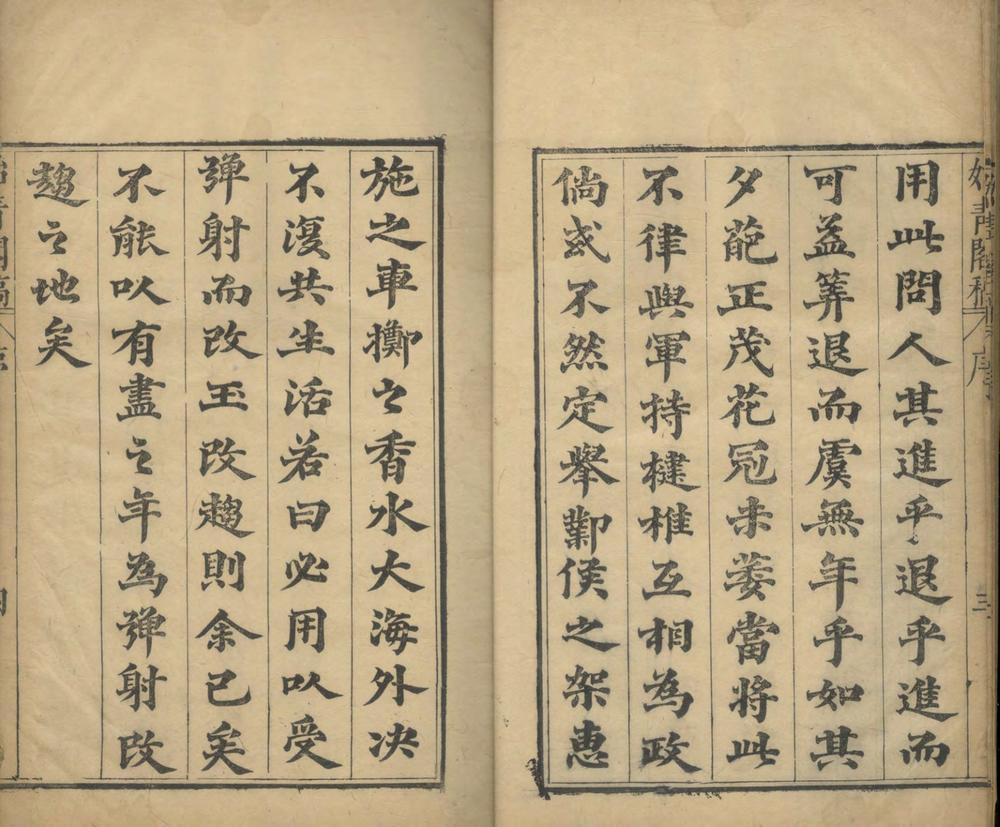 用此問人其進乎退乎進而
可益筭退而虞無年乎如其
夕葩正茂花冠未萎當將此
不律與軍持揵椎互相為政
倘或不然定舉鄴侯之架惠
施之車擲之香水大海外决
不復共生活若曰必用以受
彈射而改玉改趨則余已矣
不能以有盡之年為彈射改
趨之地矣
青閣稿
序
三